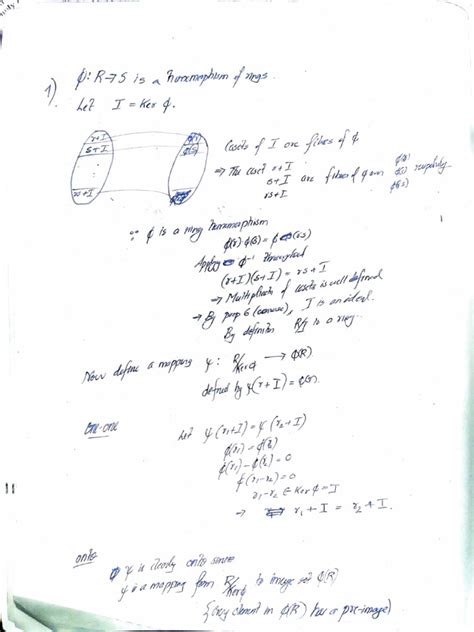 1) φ: R→S is a homomorphism of rings.
Let I = Ker φ.
r+I
s+I
φ(s)
rs+I
Cosets of I are fibres of φ
⇒ The coset r+I
s+I are fibres of φ over φ(r) φ(s) respectively
rs+I
∵ φ is a ring homomorphism
φ(r) φ(s) = φ(rs)
Applying φ⁻¹ throughout
(r+I)(s+I) = rs+I
→ Multiplicatn of cosets is well defined
→ By prop 6 (converse), I is an ideal.
By definition R/I is a ring.
Now define a mapping ψ: R/Ker φ → φ(R)
defined by ψ(r+I) = φ(r).
One-one
Let ψ(r₁+I) = ψ(r₂+I)
φ(r₁) = φ(r₂)
φ(r₁) - φ(r₂) = 0
φ(r₁-r₂) = 0
r₁-r₂ ∈ Ker φ = I
⇒ r₁+I = r₂+I.
onto
ψ is clearly onto since
ψ is a mapping form R/Ker φ to image set φ(R)
{Every element in φ(R) has a pre-image}